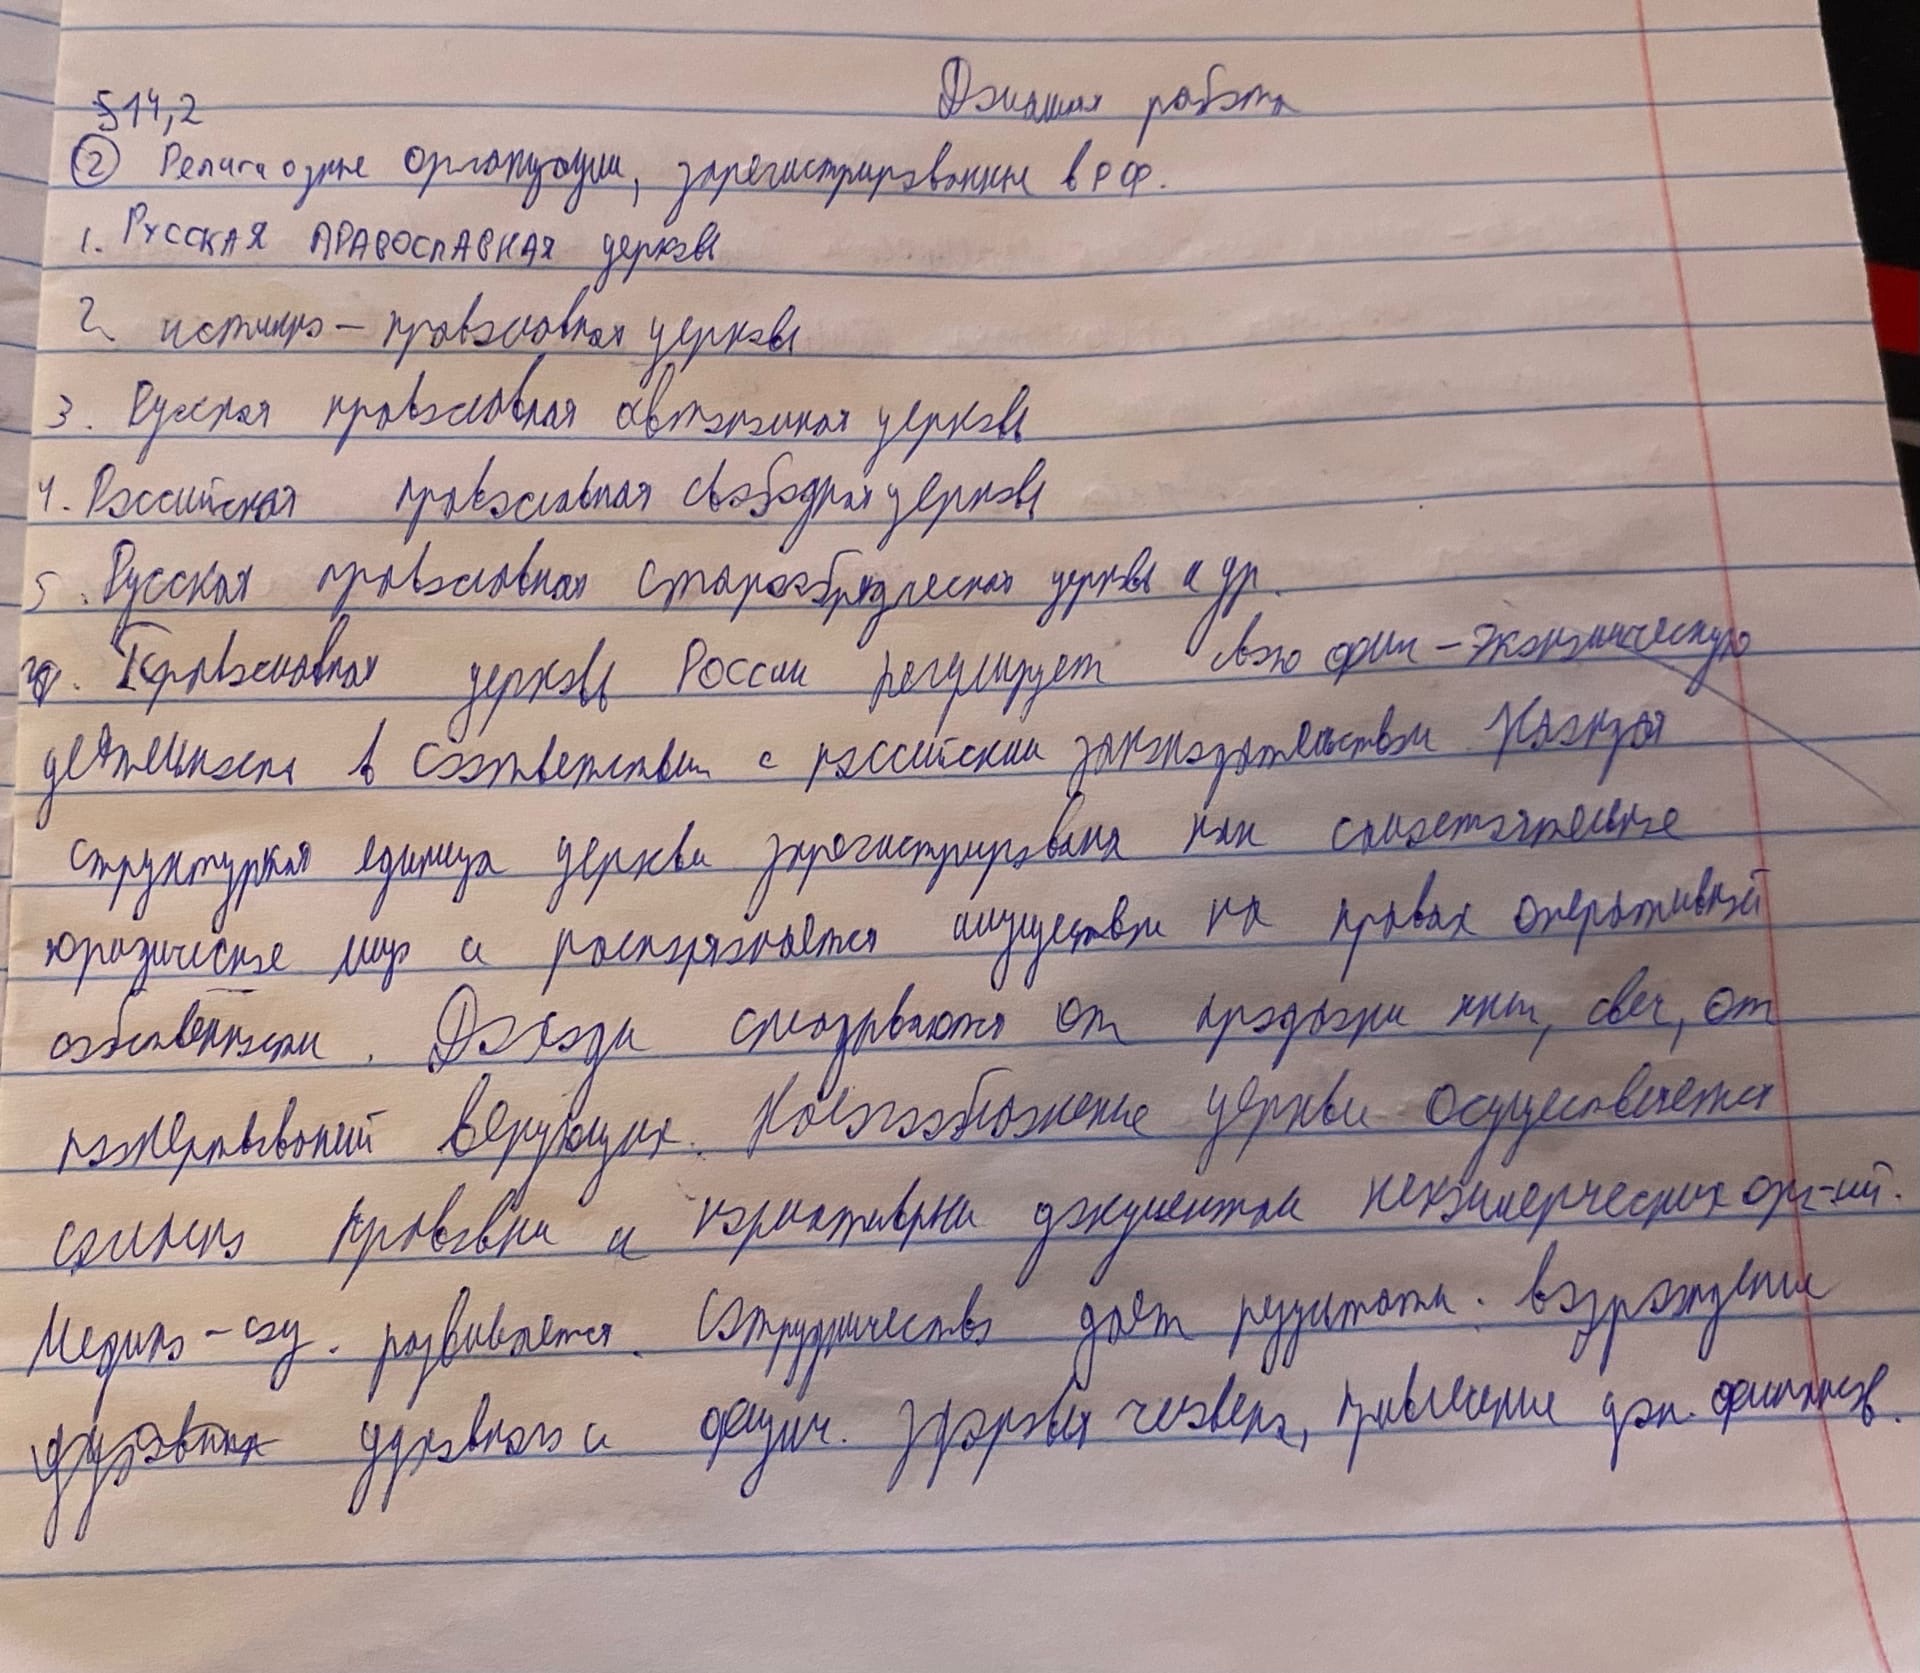 Домашняя работа
§14,2
② Религиозные организации, зарегистрированные в РФ.
1. Русская православная церковь
2. истинно - православная церковь
3. Русская православная автономная церковь
4. Российская православная свободная церковь
5. Русская православная старообрядческая церковь и др.
Православная церковь России регулирует свою фин - экономическую
деятельность в соответствии с российским законодательством Каждая
структурная единица церкви зарегистрирована как самостоятельное
юридическое лицо и распоряжается имуществом на правах оперативной
собственности. Доходы складываются от продажи книг, свеч, от
пожертвований верующих. Налогообложение церкви осуществляется
согласно правовым и нормативным документам некоммерческих орг-ий.
Медико - соц. развивается. Сотрудничество даёт результаты. возрождение
духовного и физич. здоровья человека, привлечение доп. финансов.